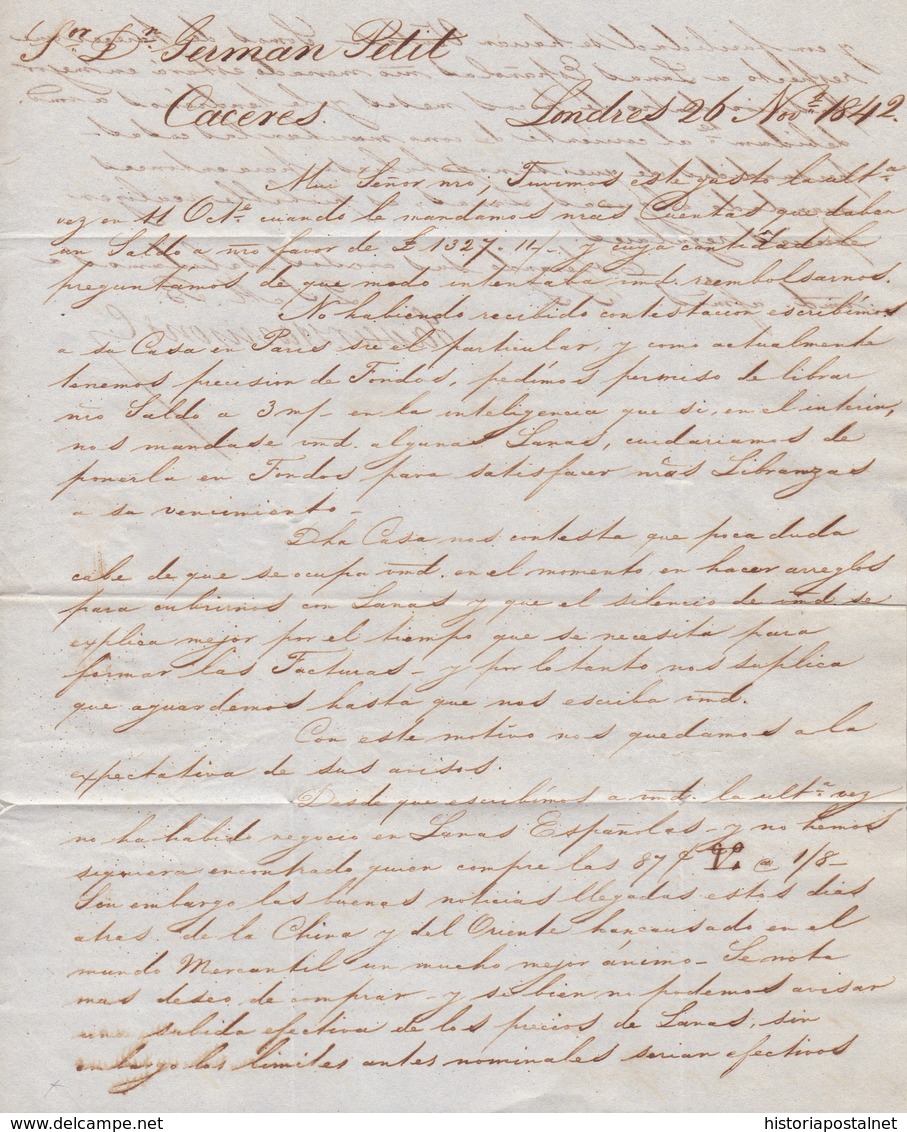 Sor. Dn. German Petit
Caceres.
Londres 26 Novre. 1842.
Mui Señor nro, Tuvimos este gusto la ulta.
vez en 11 Octe. cuando le mandamos nras Cuentas que daban
un Saldo a nro favor de £1327.14/. y cuya contedad le
preguntamos de que modo intentaba vmd. rembolsarnos.
No habiendo recibido contestacion escribimos
a su Casa en Paris sre el particular, y como actualmente
tenemos precision de Fondos, pedimos permiso de librar
nro Saldo a 3 m/- en la inteligencia que si, en el interin,
nos mandase vmd. algunas Lanas, cuidariamos de
ponerla en Fondos para satisfacer nras Libranzas
a su vencimiento-
Dha Casa nos contesta que poca duda
cabe de que se ocupa vmd. en el momento en hacer arreglos
para cubrirnos con Lanas y que el silencio de vmd. se
explica mejor por el tiempo que se necesita para
formar las Facturas- y por lo tanto nos suplica
que aguardemos hasta que nos escriba vmd.
Con este motivo nos quedamos a la
expectativa de sus avisos.
Desde que escribimos a vmd. la ulta. vez
no ha habido negocio en Lanas Españolas- y no hemos
siquiera encontrado quien compre las 87 @ 1/8-
Sin embargo las buenas noticias llegadas estos dias
atras de la China y del Oriente han causado en el
mundo Mercantil un mucho mejor ánimo- Se nota
mas deseo de comprar- y si bien no podemos avisar
una subida efectiva de los precios de Lanas, sin
embargo los limites antes nominales serian efectivos
historiapostalnet